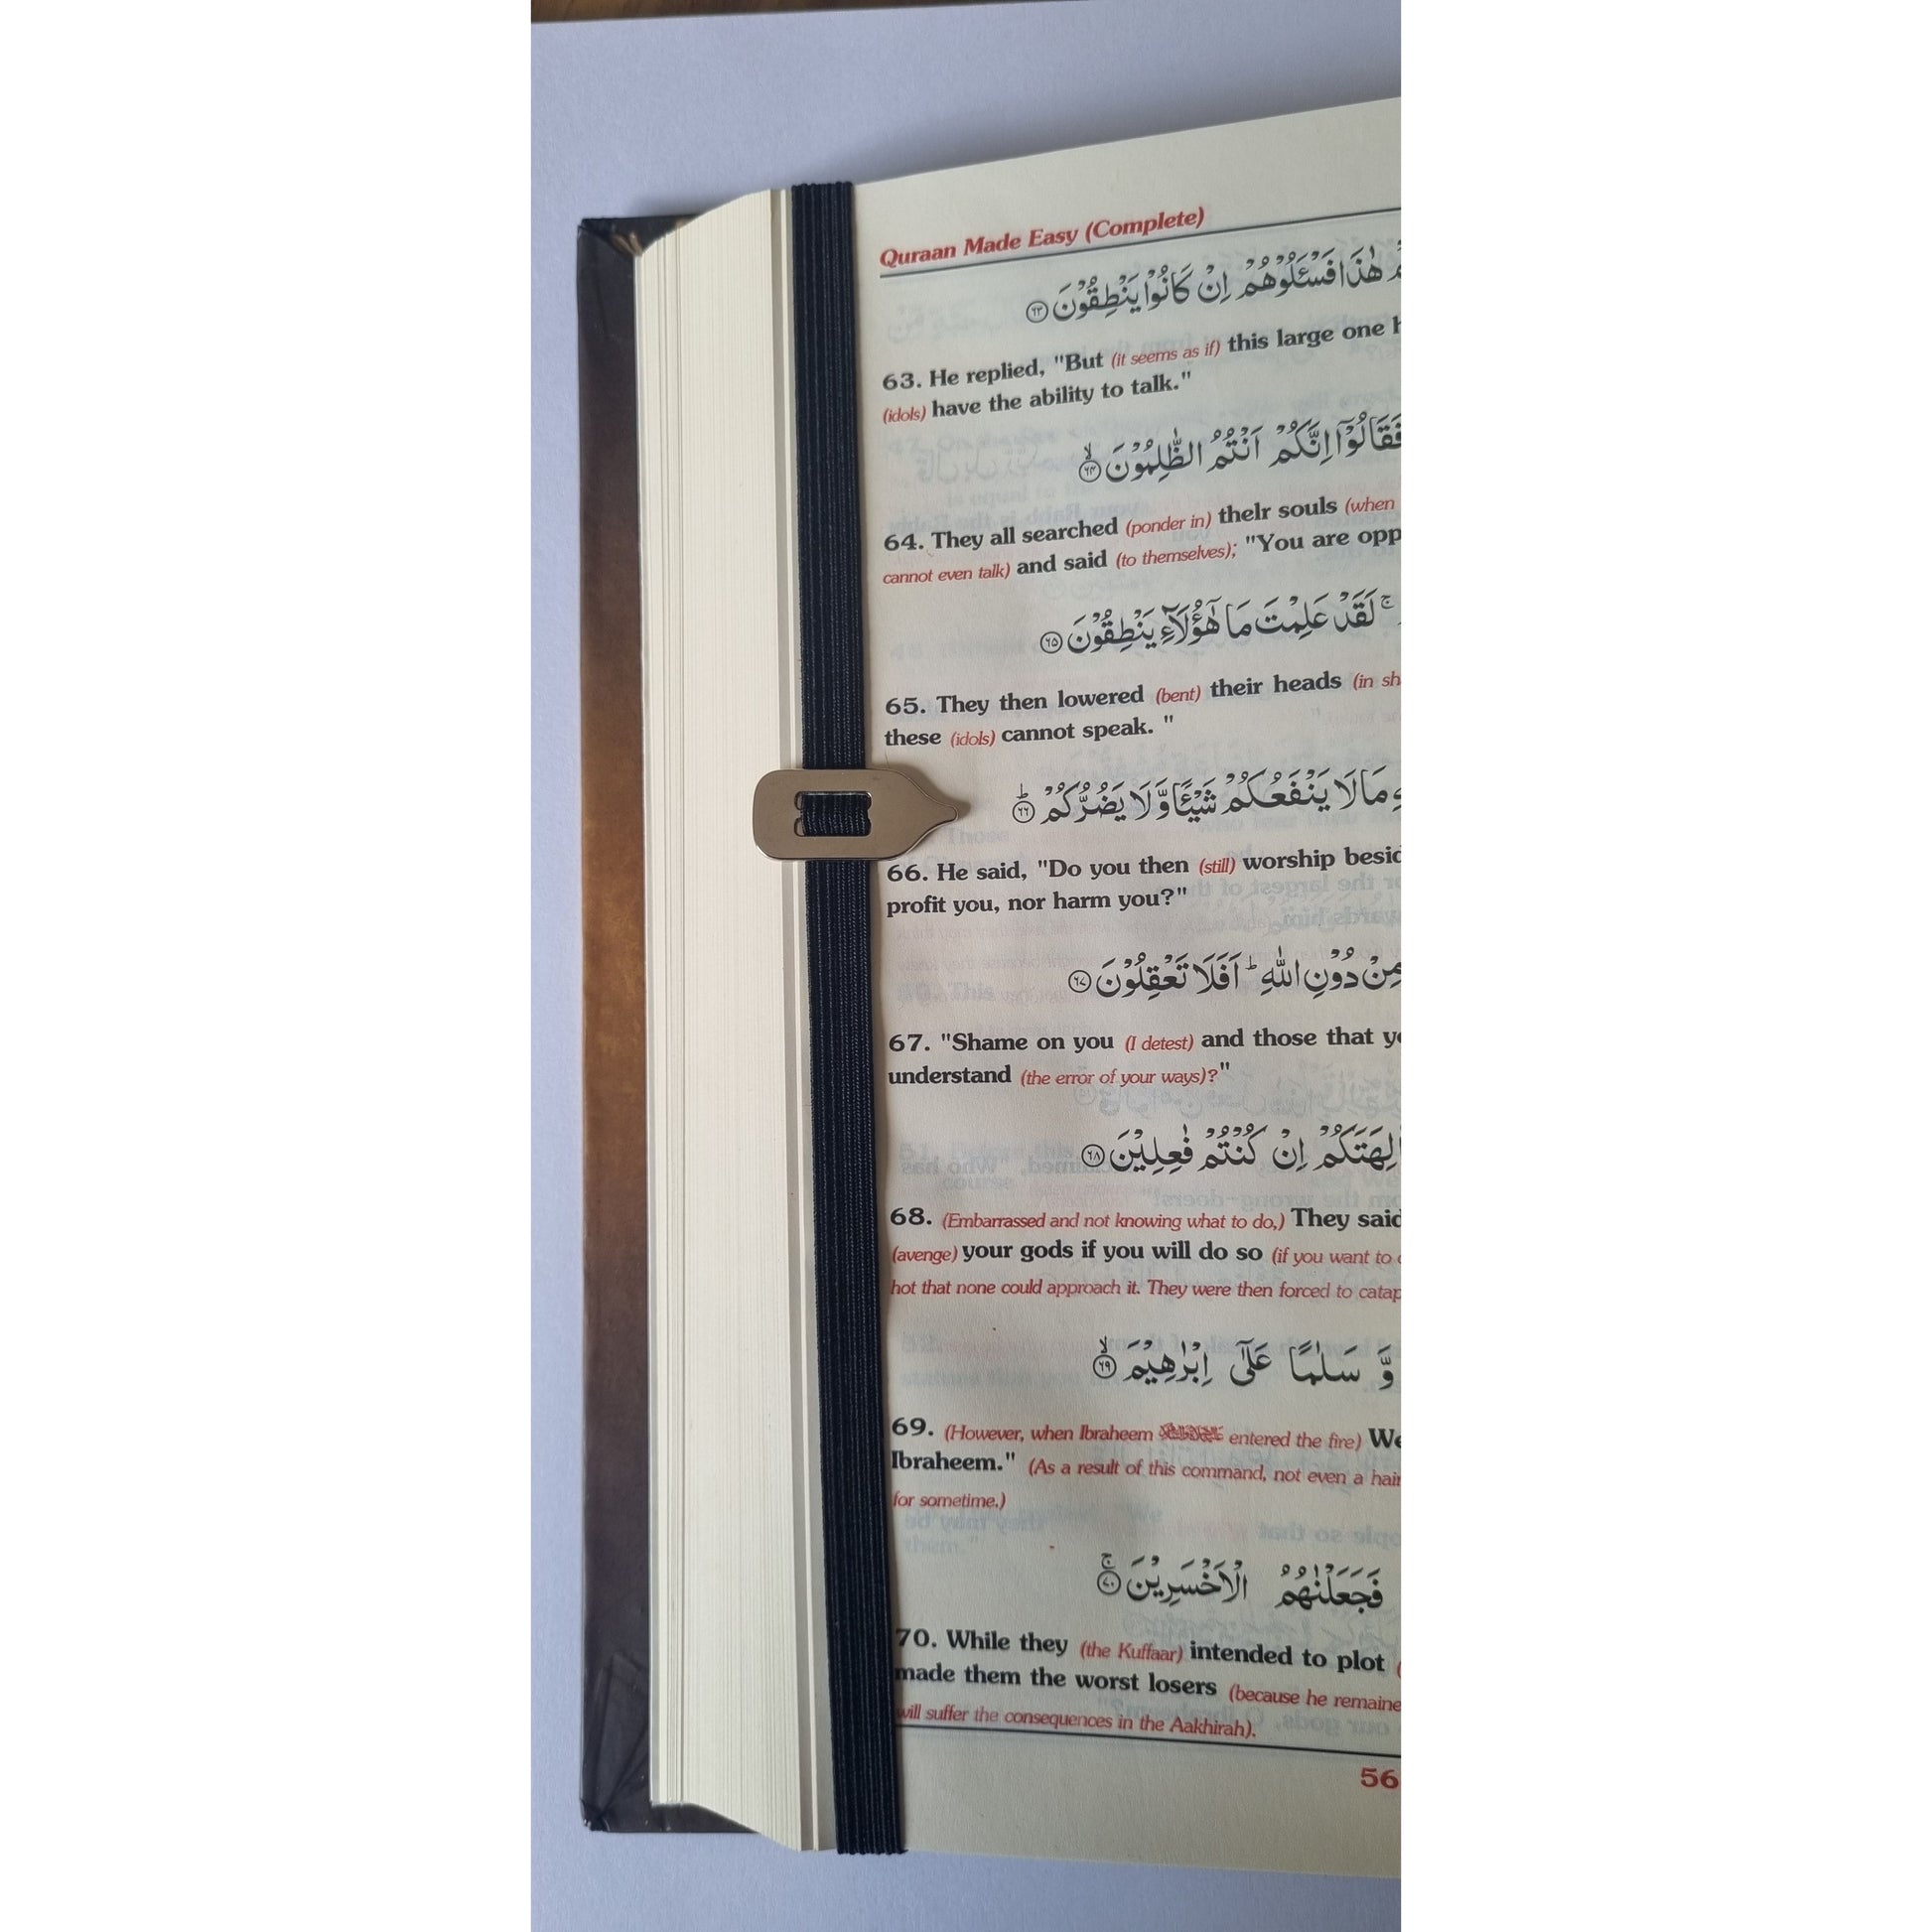 Quraan Made Easy (Complete)
هٰذَا فَسْـَٔلُوْهُمْ اِنْ كَانُوْا يَنْطِقُوْنَ ۶۳
63. He replied, "But (it seems as if) this large one
(idols) have the ability to talk."
فَقَالُوْٓا اِنَّكُمْ اَنْتُمُ الظّٰلِمُوْنَ ۙ ۶۴
64. They all searched (ponder in) their souls (when
cannot even talk) and said (to themselves); "You are
ۚ لَقَدْ عَلِمْتَ مَا هٰٓؤُلَآءِ يَنْطِقُوْنَ ۶۵
65. They then lowered (bent) their heads (in
these (idols) cannot speak. "
مَا لَا يَنْفَعُكُمْ شَيْـًٔا وَّلَا يَضُرُّكُمْ ؕ ۶۶
66. He said, "Do you then (still) worship
profit you, nor harm you?"
مِنْ دُوْنِ اللّٰهِ ؕ اَفَلَا تَعْقِلُوْنَ ۶۷
67. "Shame on you (I detest) and those that
understand (the error of your ways)?"
اٰلِهَتَكُمْ اِنْ كُنْتُمْ فٰعِلِيْنَ ۶۸
68. (Embarrassed and not knowing what to do,) They said
(avenge) your gods if you will do so (if you want to
hot that none could approach it. They were then forced to
وَّ سَلٰمًا عَلٰٓى اِبْرٰهِيْمَ ۙ ۶۹
69. (However, when Ibraheem entered the fire) We
Ibraheem." (As a result of this command, not even a hair
for sometime.)
فَجَعَلْنٰهُمُ الْاَخْسَرِيْنَ ۚ ۷۰
70. While they (the Kuffaar) intended to plot
made them the worst losers (because he
will suffer the consequences in the Aakhirah).
56